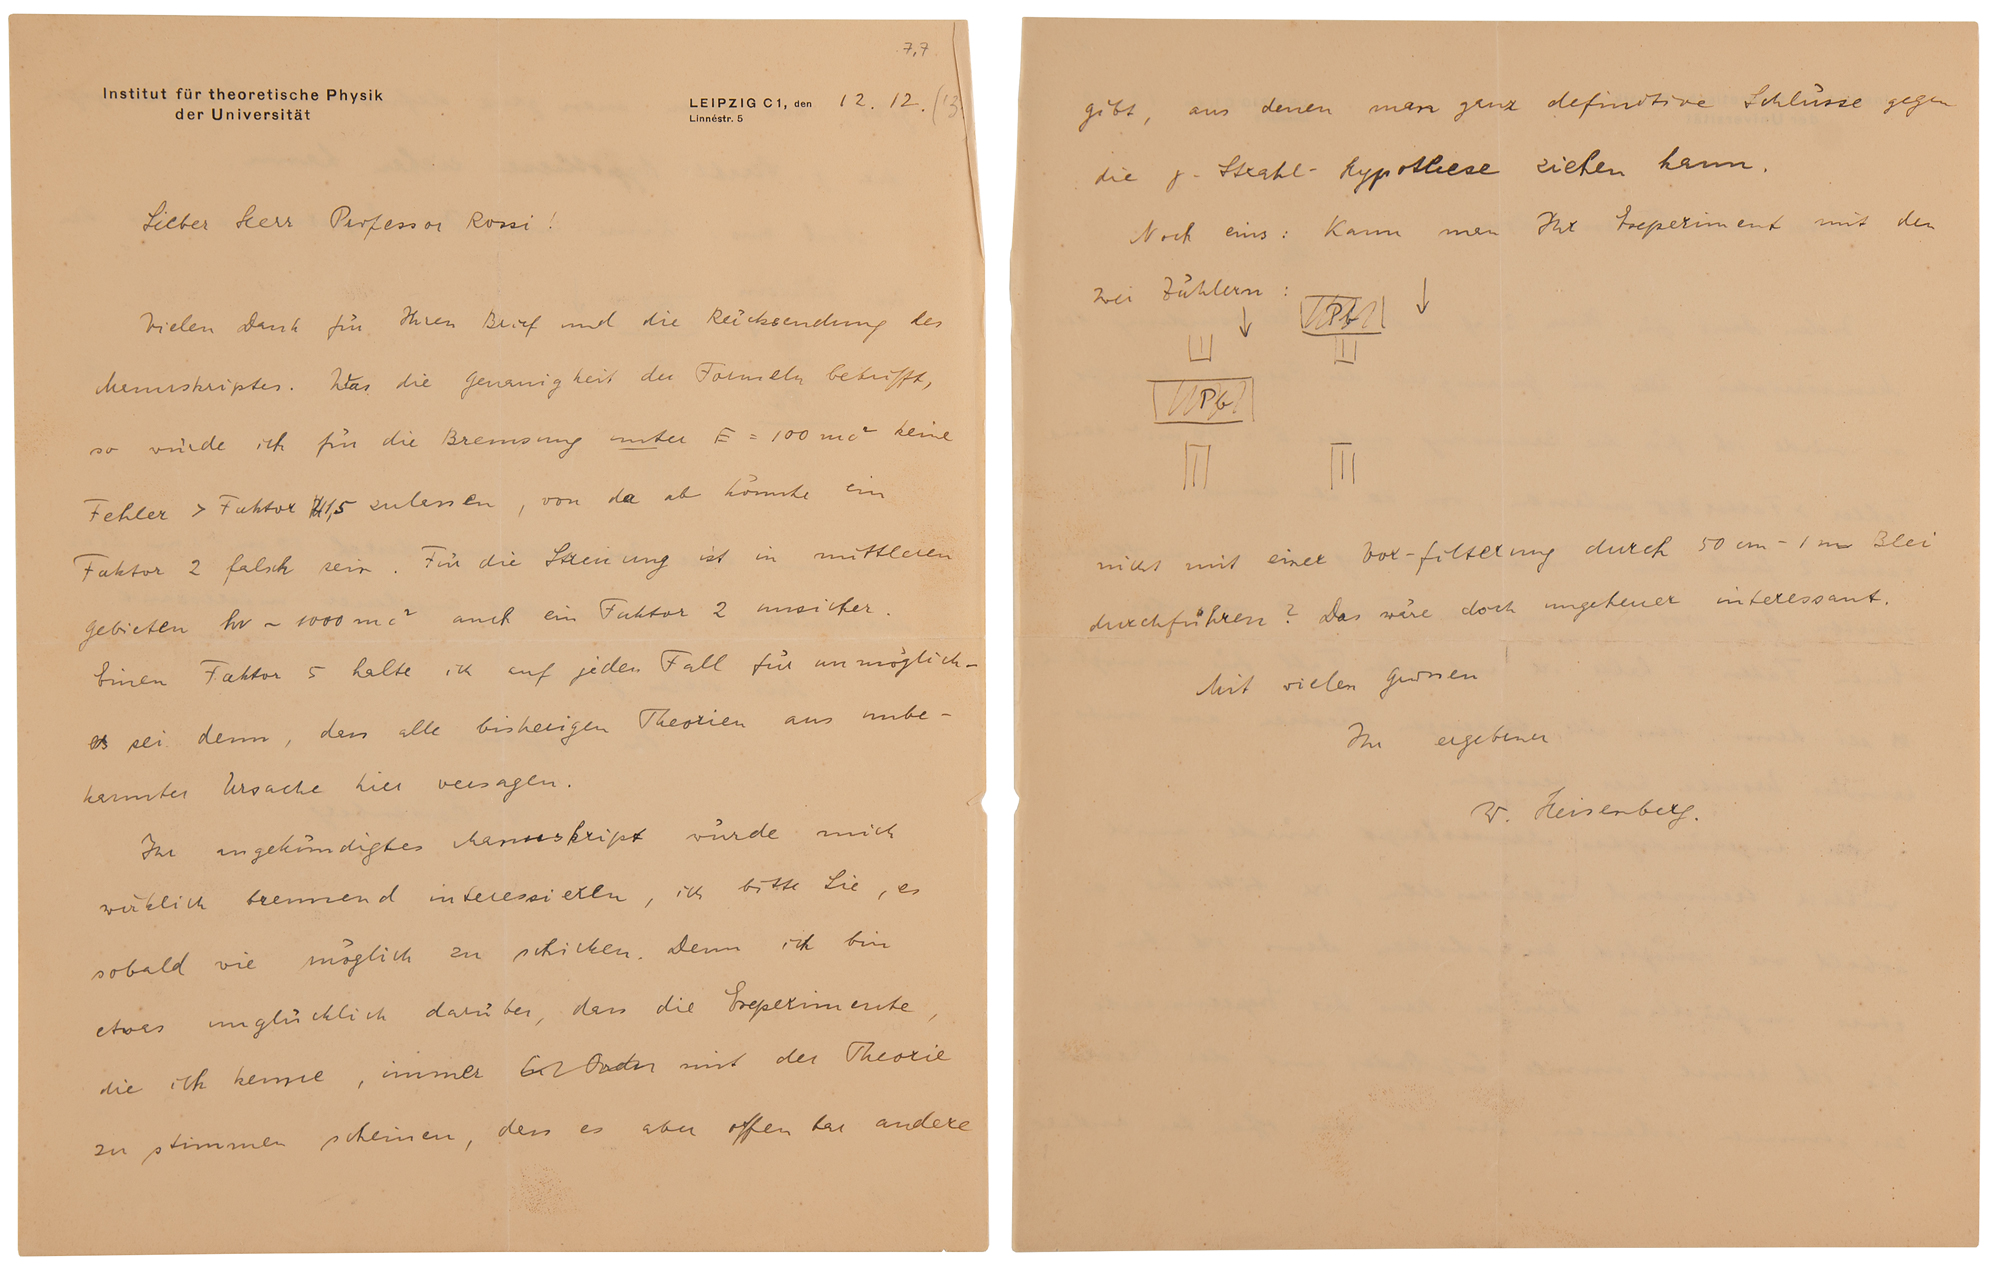 7,7
Institut für theoretische Physik
der Universität
LEIPZIG C1, den 12. 12.
Linnéstr. 5
Lieber Herr Professor Rossi!
Vielen Dank für Ihren Brief und die Rücksendung des
Manuskriptes. Was die Genauigkeit der Formeln betrifft,
so würde ich für die Bremsung unter E = 100 mc² keine
Fehler > Faktor 1,5 zulassen, von da ab könnte ein
Faktor 2 falsch sein. Für die Streuung ist in mittleren
Gebieten hν ~ 1000 mc² auch ein Faktor 2 unsicher.
Einen Faktor 5 halte ich auf jeden Fall für unmöglich –
es sei denn, dass alle bisherigen Theorien aus unbe-
kannter Ursache hier versagen.
Ihr angekündigtes Manuskript würde mich
wirklich brennend interessieren, ich bitte Sie, es
sobald wie möglich zu schicken. Denn ich bin
etwas unglücklich darüber, dass die Experimente,
die ich kenne, immer mit der Theorie
zu stimmen scheinen, dass es aber offenbar andere
gibt, aus denen man ganz definitive Schlüsse gegen
die γ-Strahl-Hypothese ziehen kann.
Noch eins: Kann man Ihr Experiment mit den
zwei Zählern:
Pb
Pb
nicht mit einer Vor-filterung durch 50 cm – 1 m Blei
durchführen? Das wäre doch ungeheuer interessant.
Mit vielen Grüssen
Ihr ergebener
W. Heisenberg.